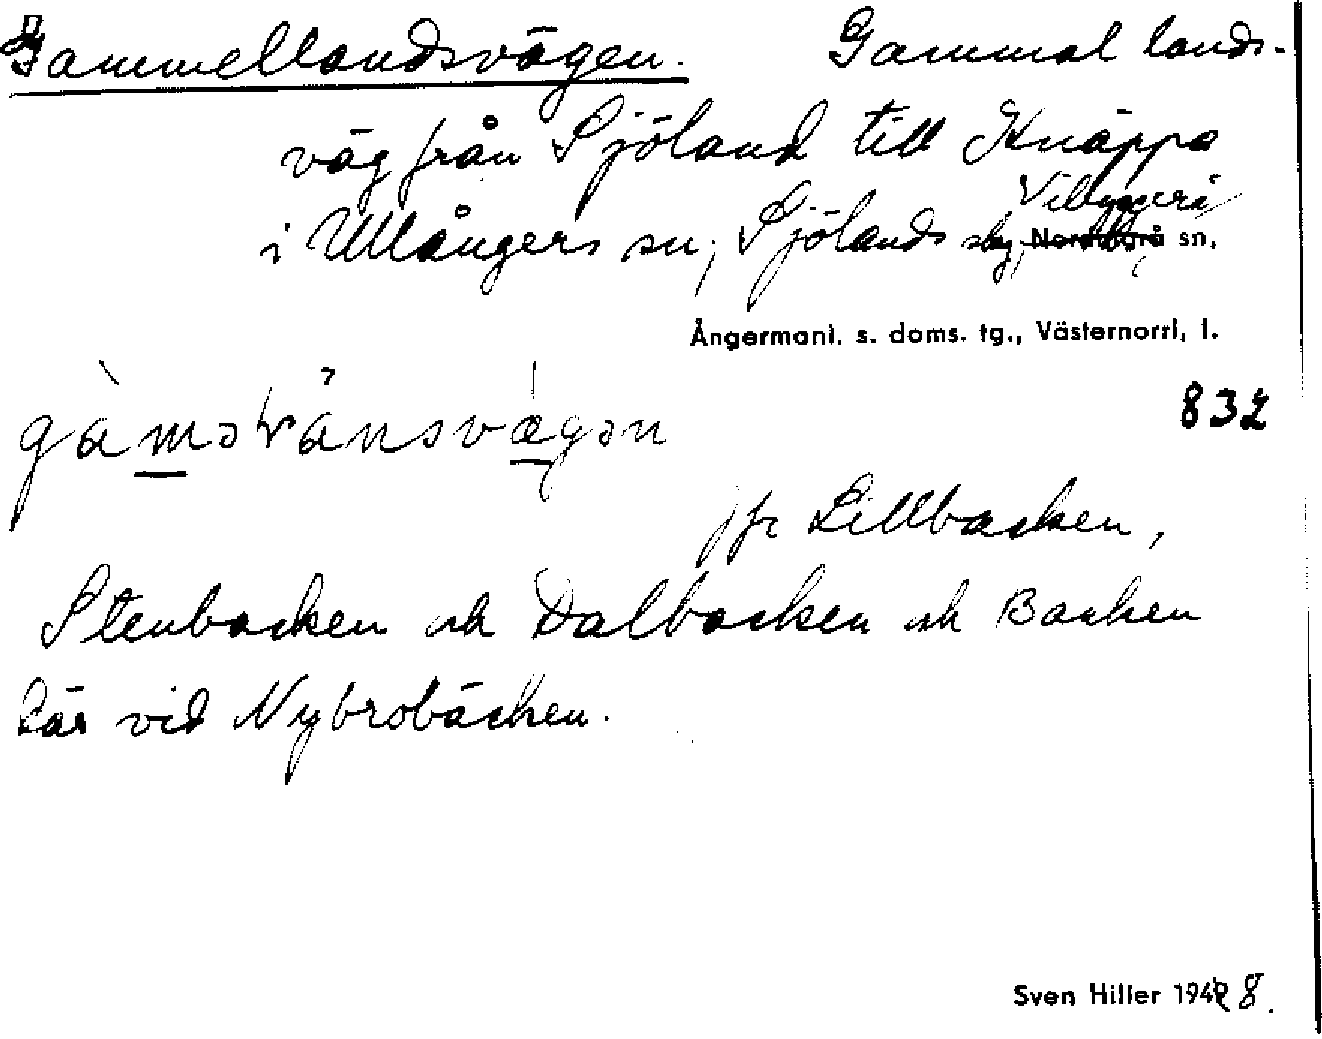 Gammellandsvägen. Gammal lands-
väg från Sjöland till Knäppa
i Ullångers sn; Sjölands by, Vibyggerå sn,
Ångermanl. s. doms. tg., Västernorrl, l.
832
jfr Lillbacken,
Stenbacken och Dalbacken och Backen
här vid Nybrobäcken.
Sven Hiller 1948.